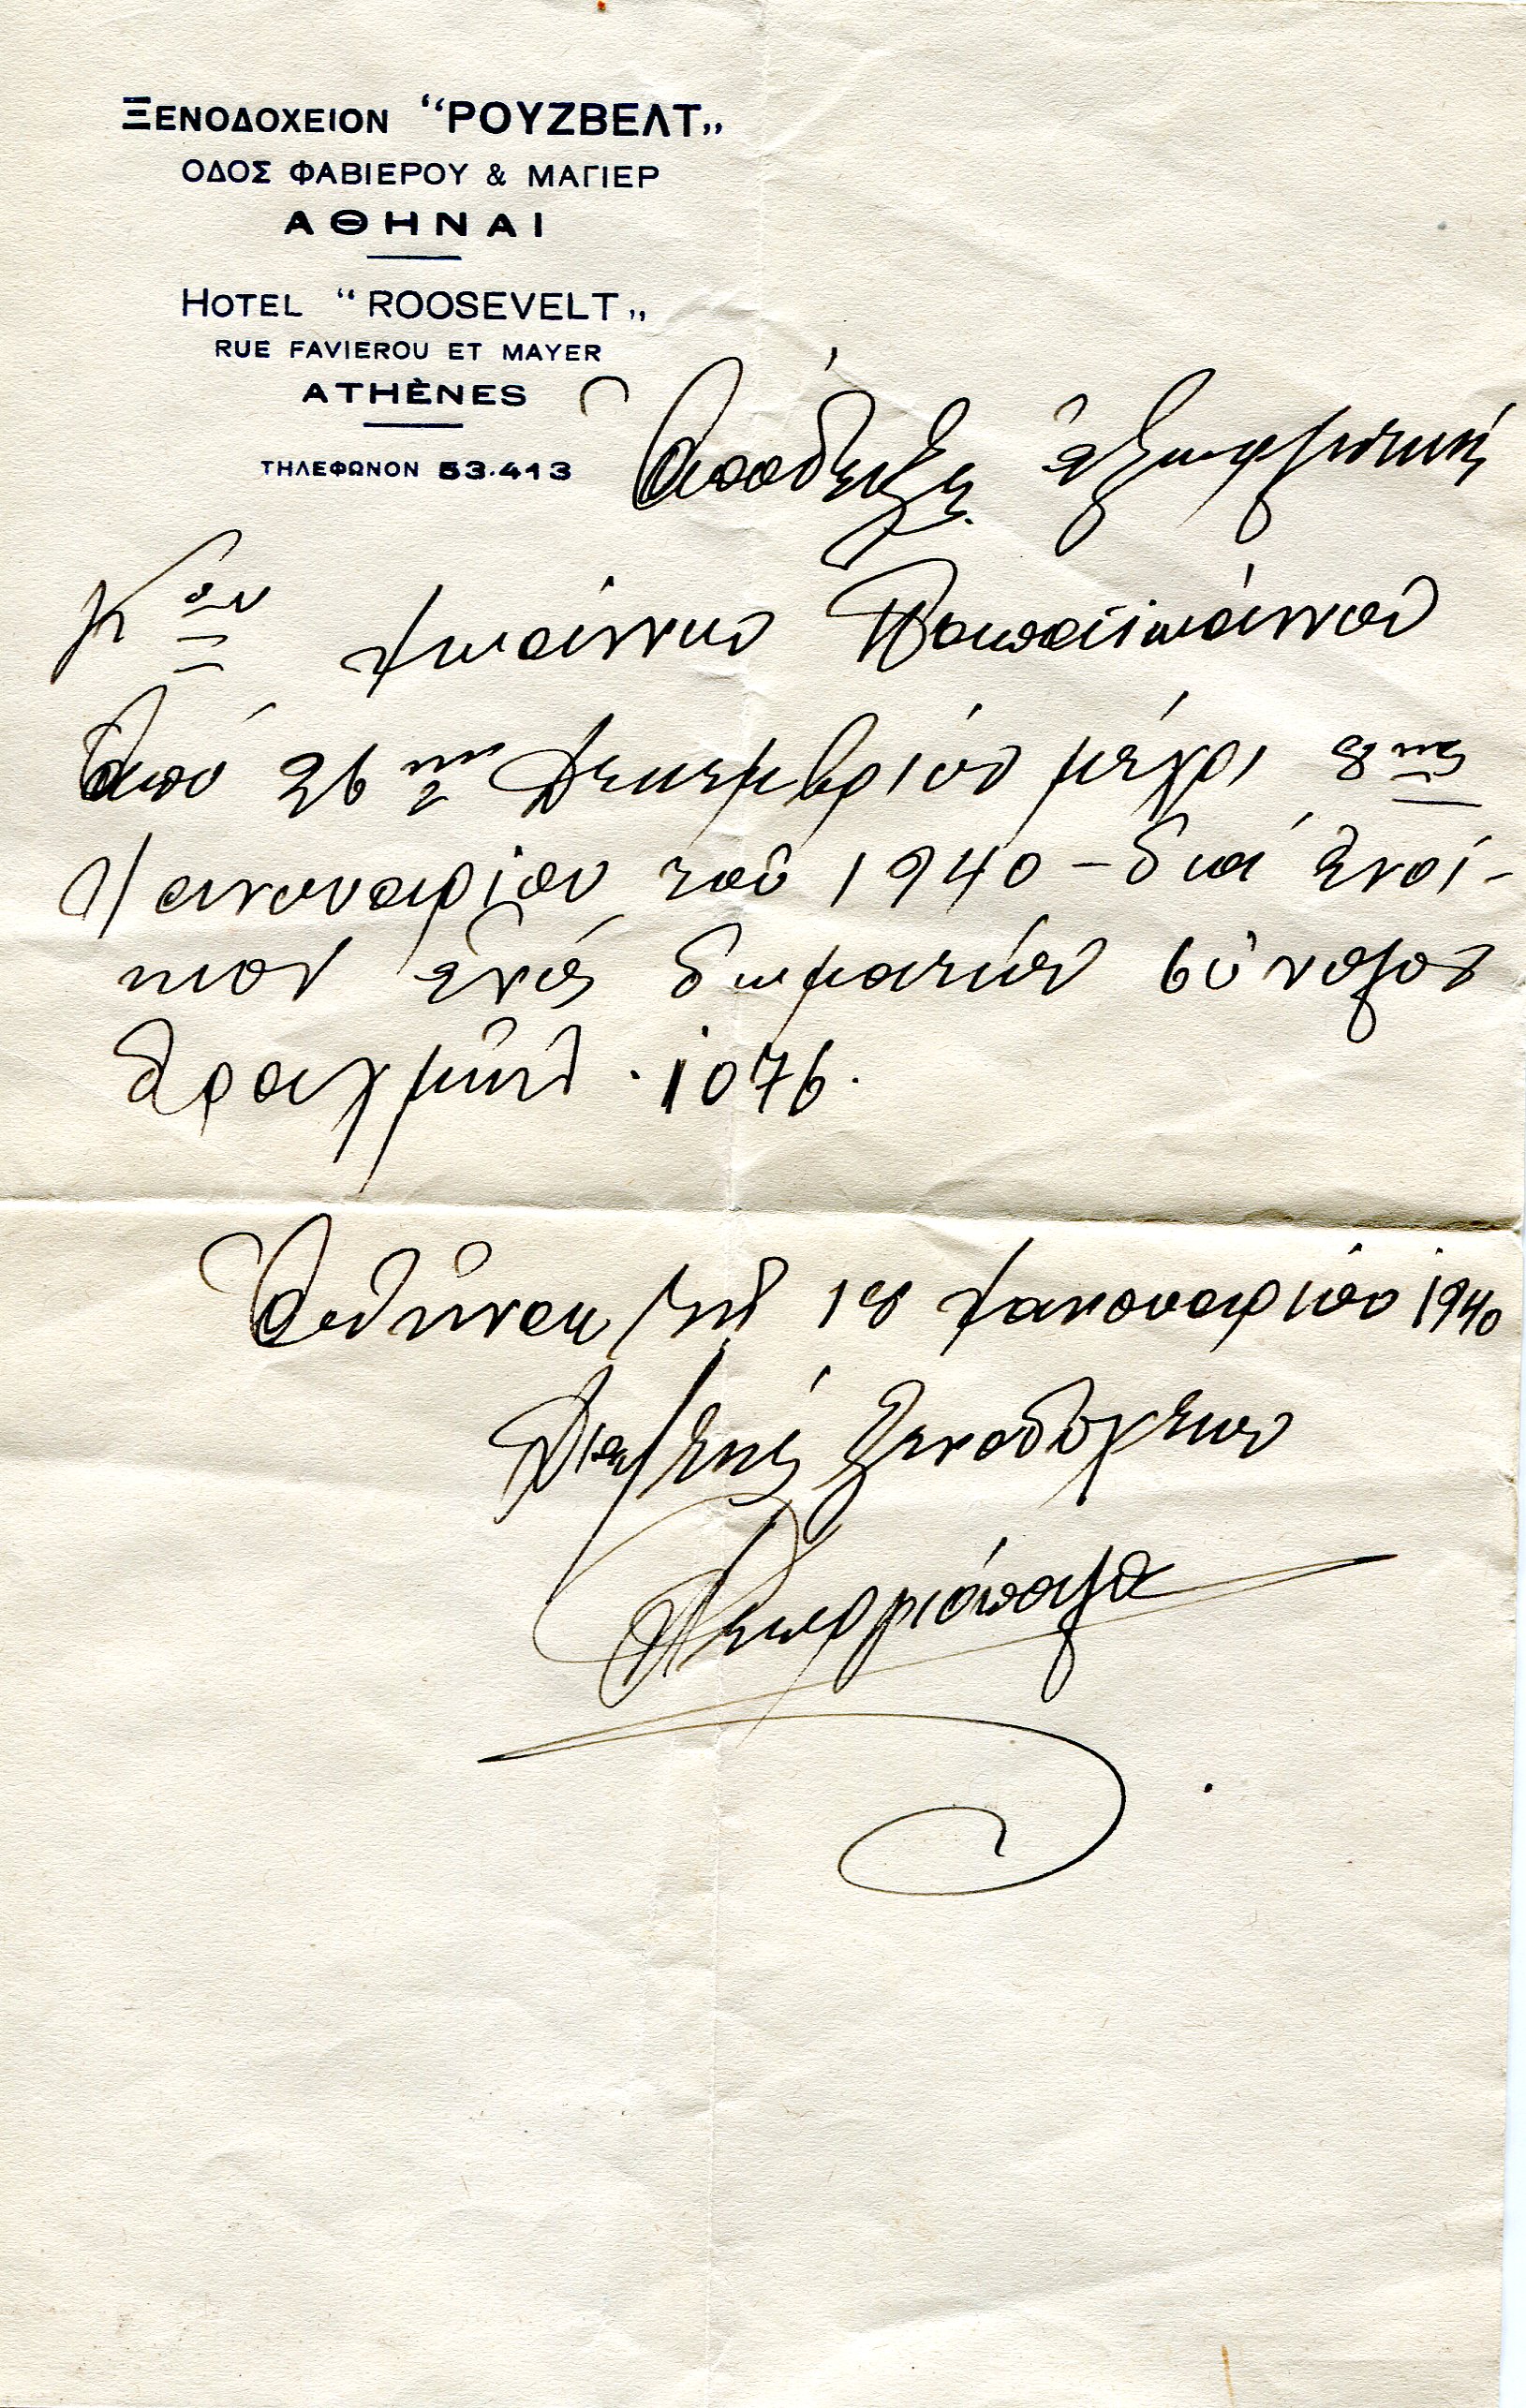 ΞΕΝΟΔΟΧΕΙΟΝ “ΡΟΥΖΒΕΛΤ„
ΟΔΟΣ ΦΑΒΙΕΡΟΥ & ΜΑΓΙΕΡ
ΑΘΗΝΑΙ
HOTEL “ROOSEVELT„
RUE FAVIEROU ET MAYER
ATHÈNES
ΤΗΛΕΦΩΝΟΝ 53.413
Ἀπόδειξις ἐξωφλητική
Κου Ἰωάννου Παπαϊωάννου
Ἀπό 26ης Δεκεμβρίου μέχρι 8ης
Ἰανουαρίου τοῦ 1940 – διά ἐνοί-
κιον ἑνός δωματίου σύνολον
δραχμῶν . 1076.
Ἀθῆναι τῇ 18 Ἰανουαρίου 1940
ξενοδοχείου